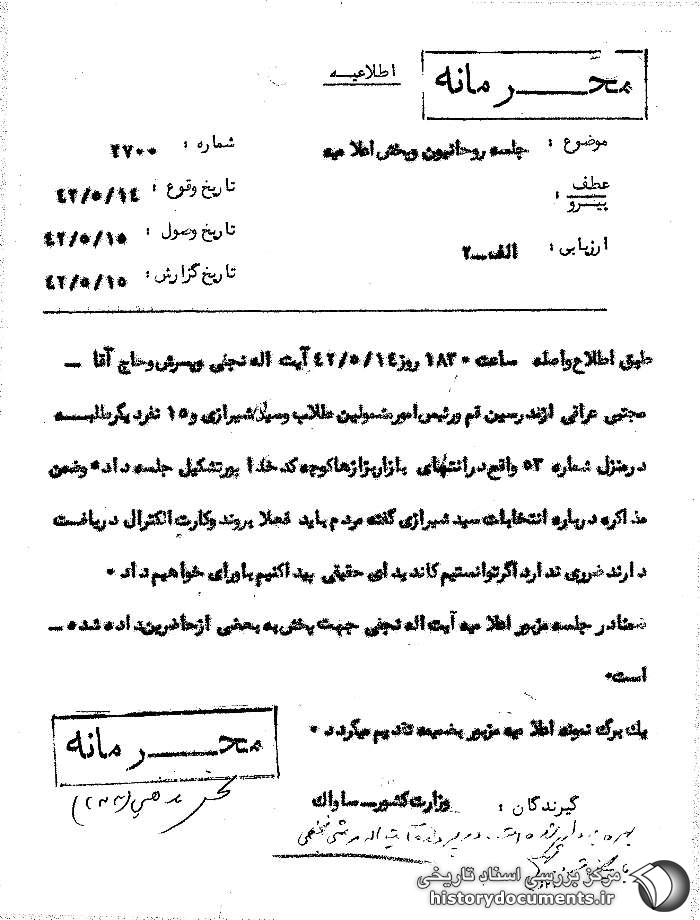 محرمانه
اطلاعیه
موضوع : جلسه روحانیون وپخش اعلا میه
شماره : ۲۷۰۰
عطف
پیرو :
تاریخ وقوع : ۴۲/۵/۱۴
تاریخ وصول : ۴۲/۵/۱۵
ارزیابی : الف ــ۲
تاریخ گزارش : ۴۲/۵/۱۵
طبق اطلاع واصله ساعت ۱۸۳۰ روز ۴۲/۵/۱۴ آیت اله نجفی وپسرش وحاج آقا ــ
مجتبی عراقی ازمدرسین قم ورئیس امورمشمولین طلاب وسید شیرازی و۱۵ نفردیگرطلبـــه
درمنزل شماره ۵۳ واقع درانتهای بازاربزازهاکوچه کدخدا پورتشکیل جلسه داده وضمن
مذاکره درباره انتخابات سید شیرازی گفته مردم باید فعلا بروند وکارت الکترال دریافت
دارند ضرری ندارد اگرتوانستیم کاندیدای حقیقی پیدا کنیم باورای خواهیم داد .
ضمنا در جلسه مزبور اعلا میه آیت اله نجفی جهت پخش به بعضی ازحاضرین داده شده ــ
است.
یك برگ نمونه اعلا میه مزبور بضمیمه تقدیم میگردد .
محرمانه
گیرندگان : وزارت کشورــ ساواك
مرکز بررسی اسناد تاریخی
historydocuments.ir